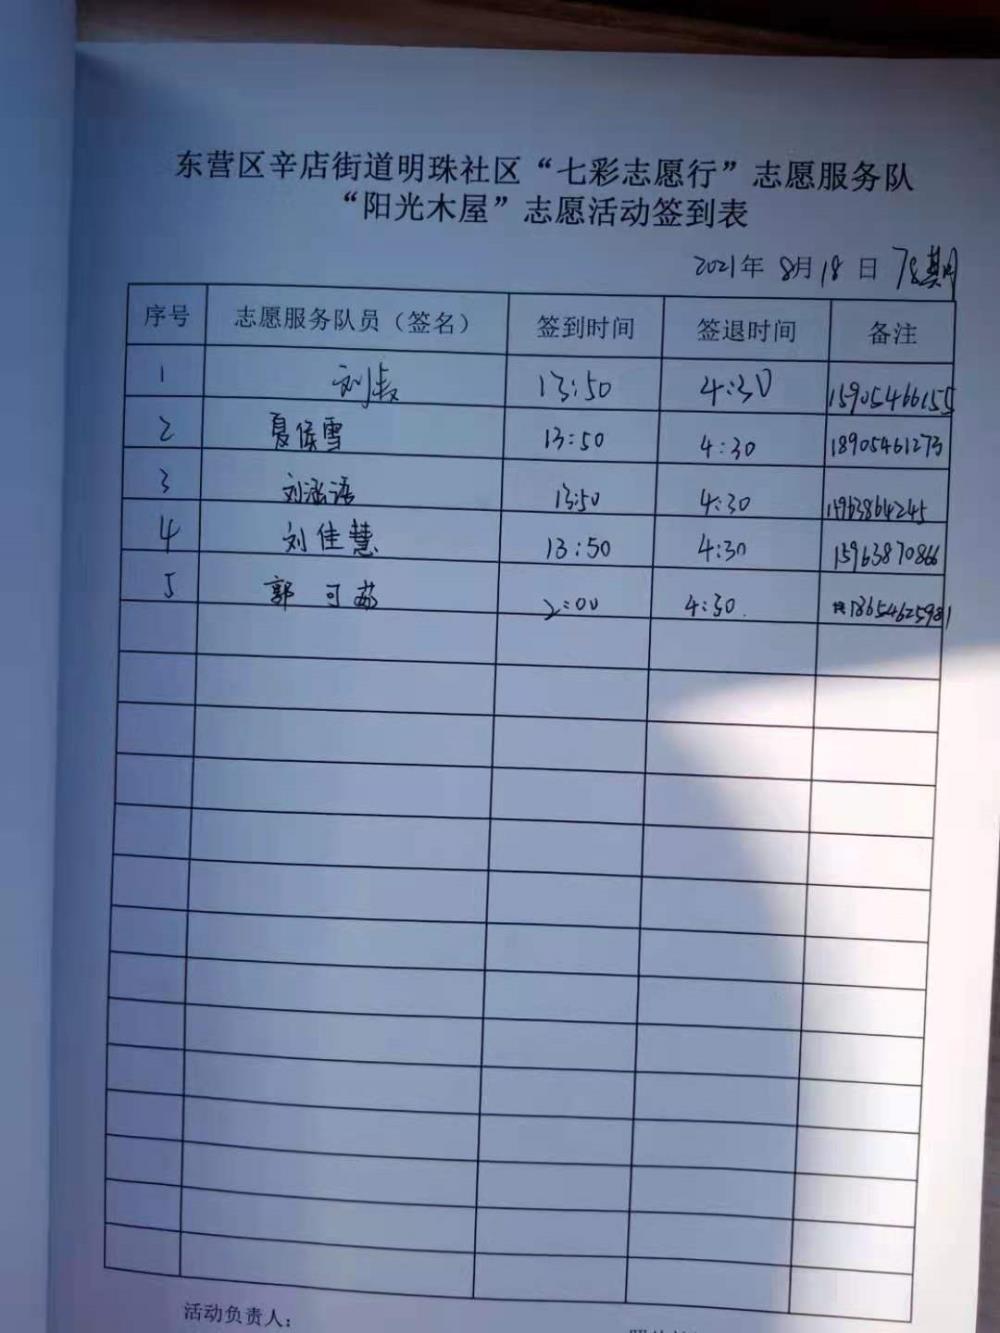 东营区辛店街道明珠社区“七彩志愿行”志愿服务队
“阳光木屋”志愿活动签到表
2021年 8月18日
序号 志愿服务队员（签名） 签到时间 签退时间 备注
1 刘 13:50 4:30 15905466155
2 夏侯雪 13:50 4:30 18905461273
3 刘泓语 13:50 4:30 15963864245
4 刘佳慧 13:50 4:30 15963870866
5 郭可 2:00 4:30 18654625981
活动负责人：